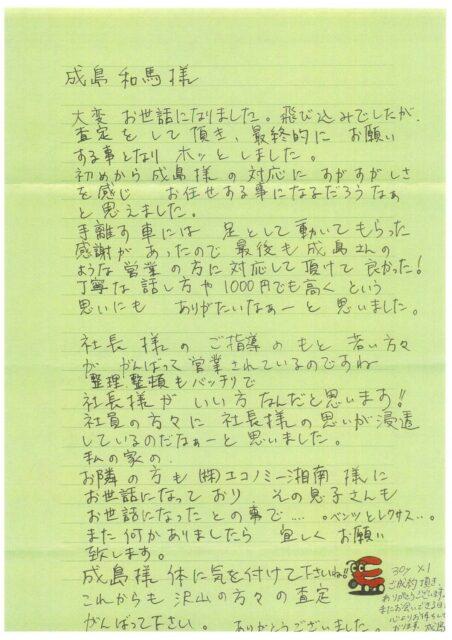 成島 和馬様
大変 お世話になりました。飛び込みでしたが、
査定をして頂き、最終的に お願い
する事となり ホッとしました。
初めから 成島様の対応に すがすがしさ
を感じ お任せする事になるだろうなぁ
と思えました。
手離す車には 足として動いてもらった
感謝が あったので 最後も 成島さんの
ような営業の方に対応して頂けて 良かった!
丁寧な話し方や1000円でも高く という
思いにも ありがたいなぁーと 思いました。
社長様の ご指導のもと 若い方々
が がんばって営業されているのですね
整理整頓もバッチリで
社長様が いい方なんだと思います!!
社員の方々に 社長様の思いが浸透
しているのだなぁーと思いました。
私の家の、
お隣の方も ㈱エコノミー湘南 様に
お世話になっており その息子さんも
お世話になったとの事で…。。ベンツとレクサス…。
また何かありましたら 宜しく お願い
致します。
成島様 体に気を付けて下さいね!!
これからも 沢山の方々の 査定
がんばって下さい。 ありがとうございました。
ご成約頂き、
ありがとうございます。
またお会いできる日を
心よりお待ちして
おります。成島